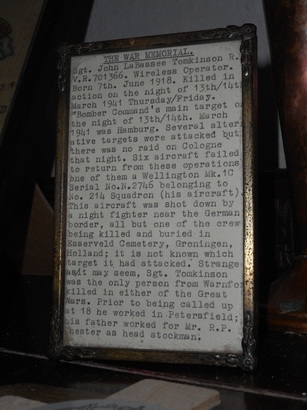 THE WAR MEMORIAL.
Sgt. John LaBassee Tomkinson R.
V.R.701366. Wireless Operator.
Born 7th. June 1918. Killed in
action on the night of 13th/14th
March 1941 Thursday/Friday.
"Bomber Command's main target on
the night of 13th/14th. March
1941 was Hamburg. Several altern
ative targets were attacked but
there was no raid on Cologne
that night. Six aircraft failed
to return from these operations
one of them a Wellington Mk.1C
Serial No.N.2746 belonging to
No. 214 Squadron (his aircraft).
This aircraft was shot down by
a night fighter near the German
border, all but one of the crew
being killed and buried in
Esserveld Cemetery, Groningen,
Holland; it is not known which
target it had attacked. Strange
as it may seem, Sgt. Tomkinson
was the only person from Warnford
killed in either of the Great
Wars. Prior to being called up
at 18 he worked in Petersfield;
his father worked for Mr. R.P.
Chester as head stockman.